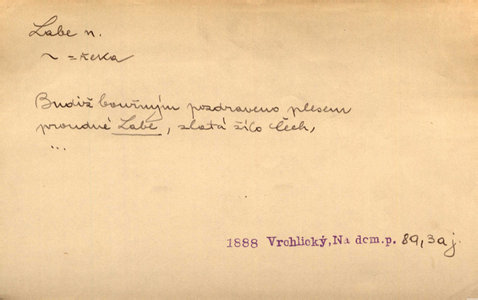 Labe n.
~ = řeka
Budiž bouřným pozdraveno plesem
proudné Labe, zlatá žílo Čech,
...
1888 Vrchlický, Na dom.p. 89, 3 a j.